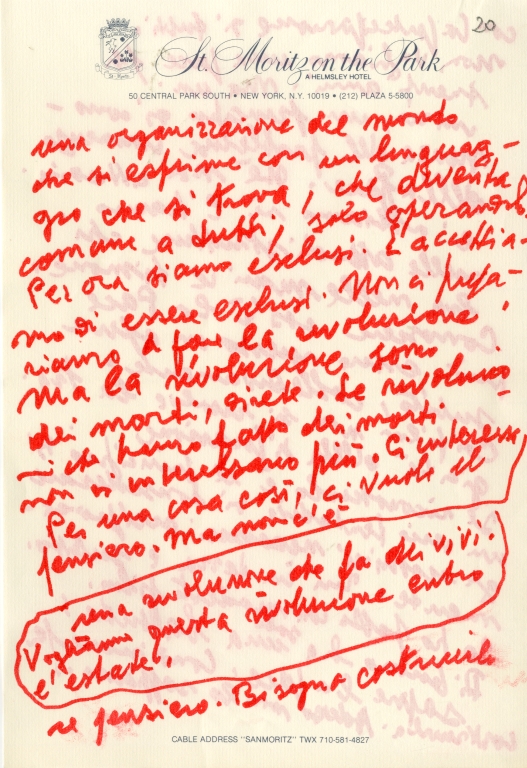 20
St. Moritz on the Park
A HELMSLEY HOTEL
50 CENTRAL PARK SOUTH • NEW YORK, N.Y. 10019 • (212) PLAZA 5-5800
una organizzazione del mondo
che si esprime con un linguag-
gio che si trova, che diventa
comune a tutti, solo operandolo
Per ora siamo esclusi. E accettia-
mo di essere esclusi. Non ci prepa-
riamo a fare la rivoluzione.
Ma la rivoluzione, sono
dei morti, direte. Le rivoluzio
ni che hanno fatto dei morti
non ci interessano più. Ci interessa
Per una cosa così, ci vuole il
pensiero. Ma non c'è
una rivoluzione che fa dei vivi.
Vogliamo questa rivoluzione entro
l'estate.
se pensiero. Bisogna costruirlo
CABLE ADDRESS "SANMORITZ" TWX 710-581-4827